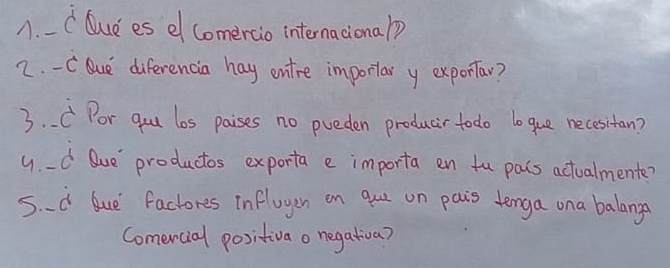 1.- ¿Qué es el comercio internacional?
2.- ¿Qué diferencia hay entre importar y exportar?
3.- ¿Por que los paises no pueden producir todo lo que necesitan?
4.- ¿Que productos exporta e importa en tu país actualmente?
5.- ¿Qué factores influyen en que un pais tenga una balanza
Comercial positiva o negativa?